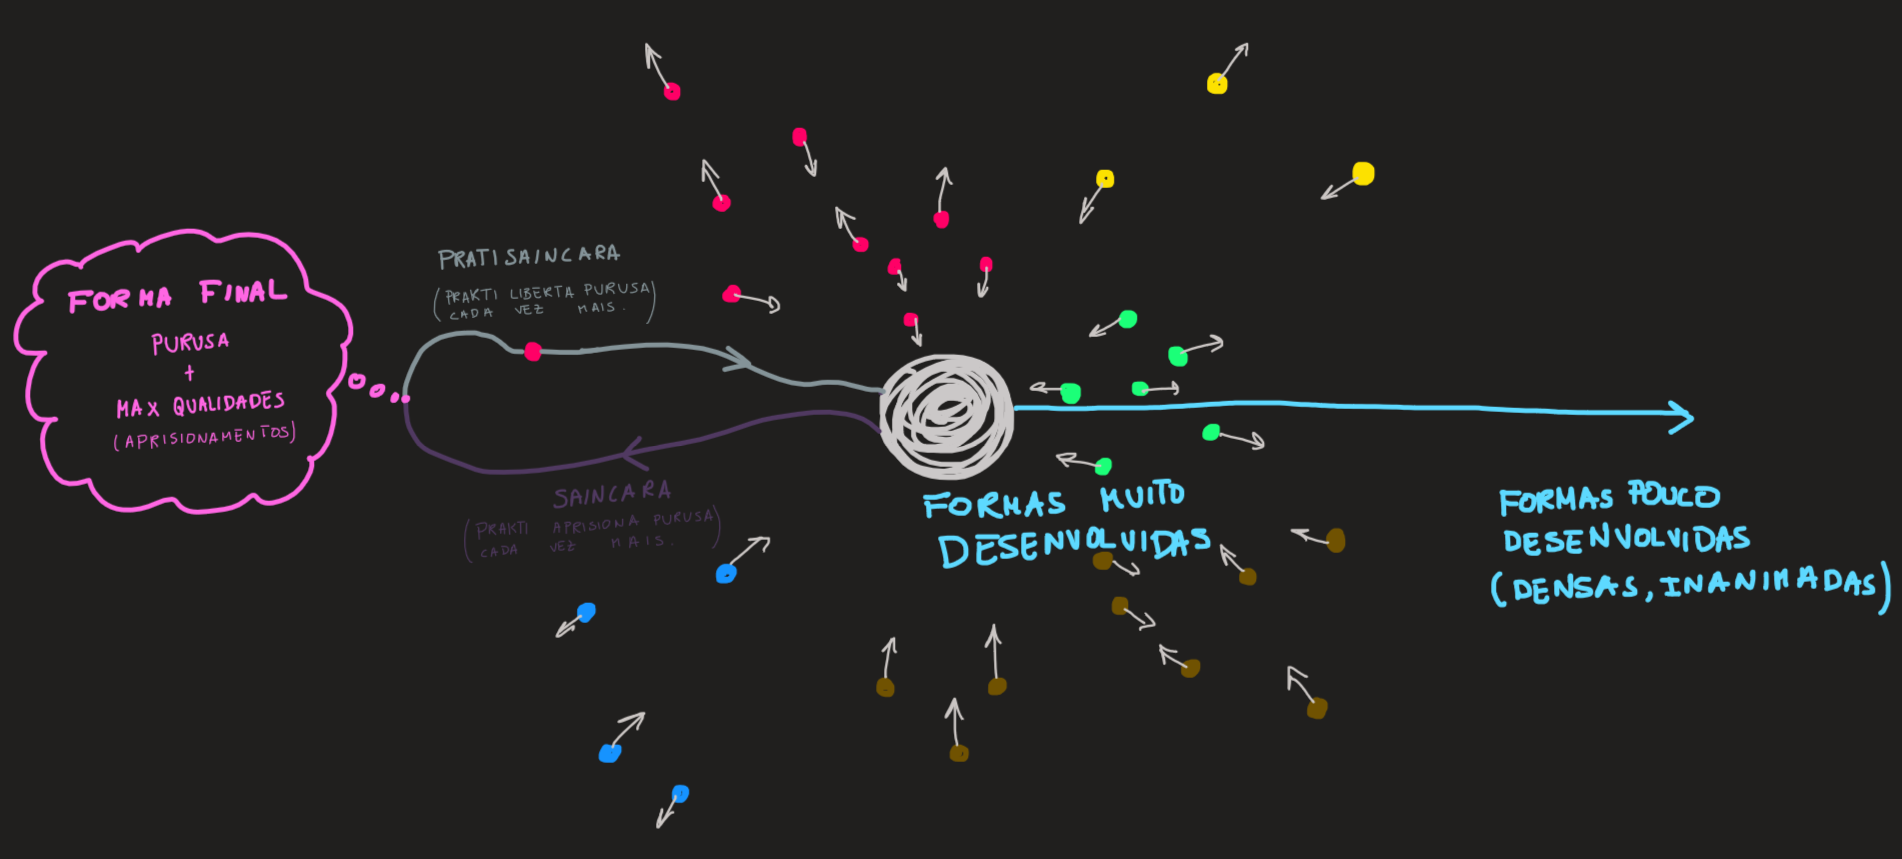 FORMA FINAL
PURUSA
+
MAX QUALIDADES
(APRISIONAMENTOS)
PRATISAINCARA
(PRAKTI LIBERTA PURUSA)
CADA VEZ MAIS.
SAINCARA
(PRAKTI APRISIONA PURUSA)
CADA VEZ MAIS.
FORMAS MUITO
DESENVOLVIDAS
FORMAS POUCO
DESENVOLVIDAS
(DENSAS, INANIMADAS)